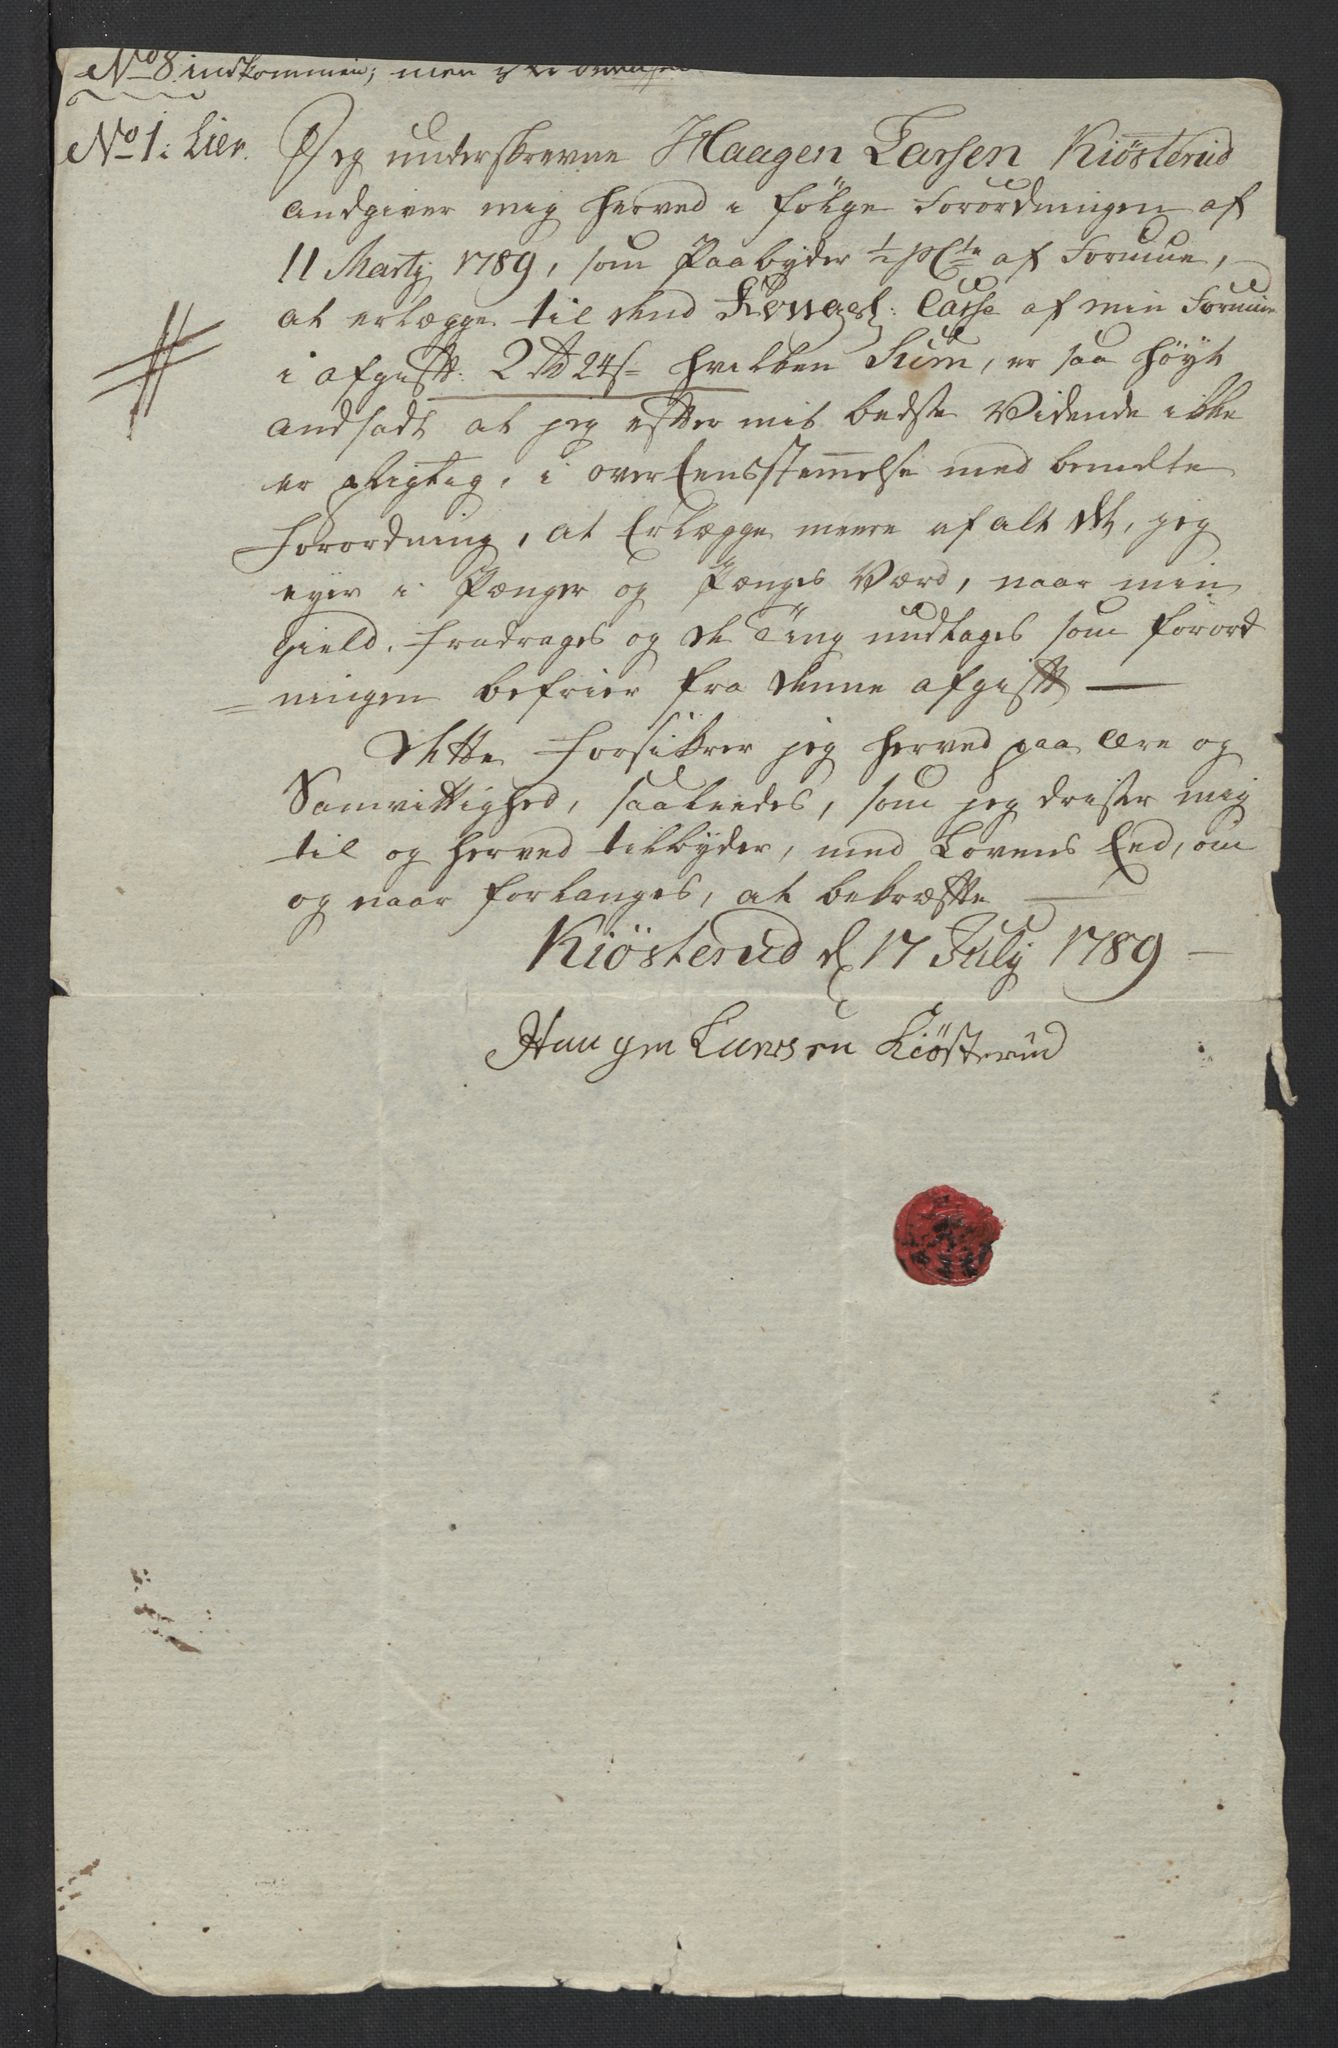 No 8 indkommen; men ikke
No 1. Lier.
Jeg underskrevne Haagen Larsen Kiösterud
andgiver mig herved i fölge Forordningen af
11 Martj 1789, som Paabyder ½ pCto af Formue,
at erlægge til dend Kongel: Casse af min Formue
i afgift: 2 rd 24 s hvilken Sum, er saa höyt
andsadt at jeg efter mit bedste Vidende ikke
er pligtig, i overEensstemmelse med bemelte
Forordning, at Erlægge meere af alt det, jeg
eyer i Pænger og Pænges Værd, naar min
gield, fradrages og de Ting undtages som forord
= ningen befrier fra denne afgift —
Dette forsikrer jeg herved paa ære og
Samvittighed, saaleedes, som jeg drister mig
til og herved tilbyder, med Lovens Eed, om
og naar forlanges, at bekræfte —
Kiösterud d 17 July 1789 —
Haagen Larsen Kiösterud